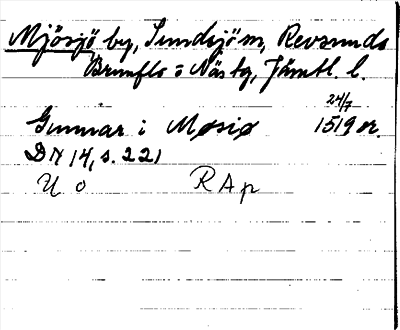 Mjösjö by, Sundsjö sn, Revsunds
Brunflo o Näs tg, Jämtl. l.
24/7
Gunnar i Møsiø 1519 or.
DN 14, s. 221
U o RAp